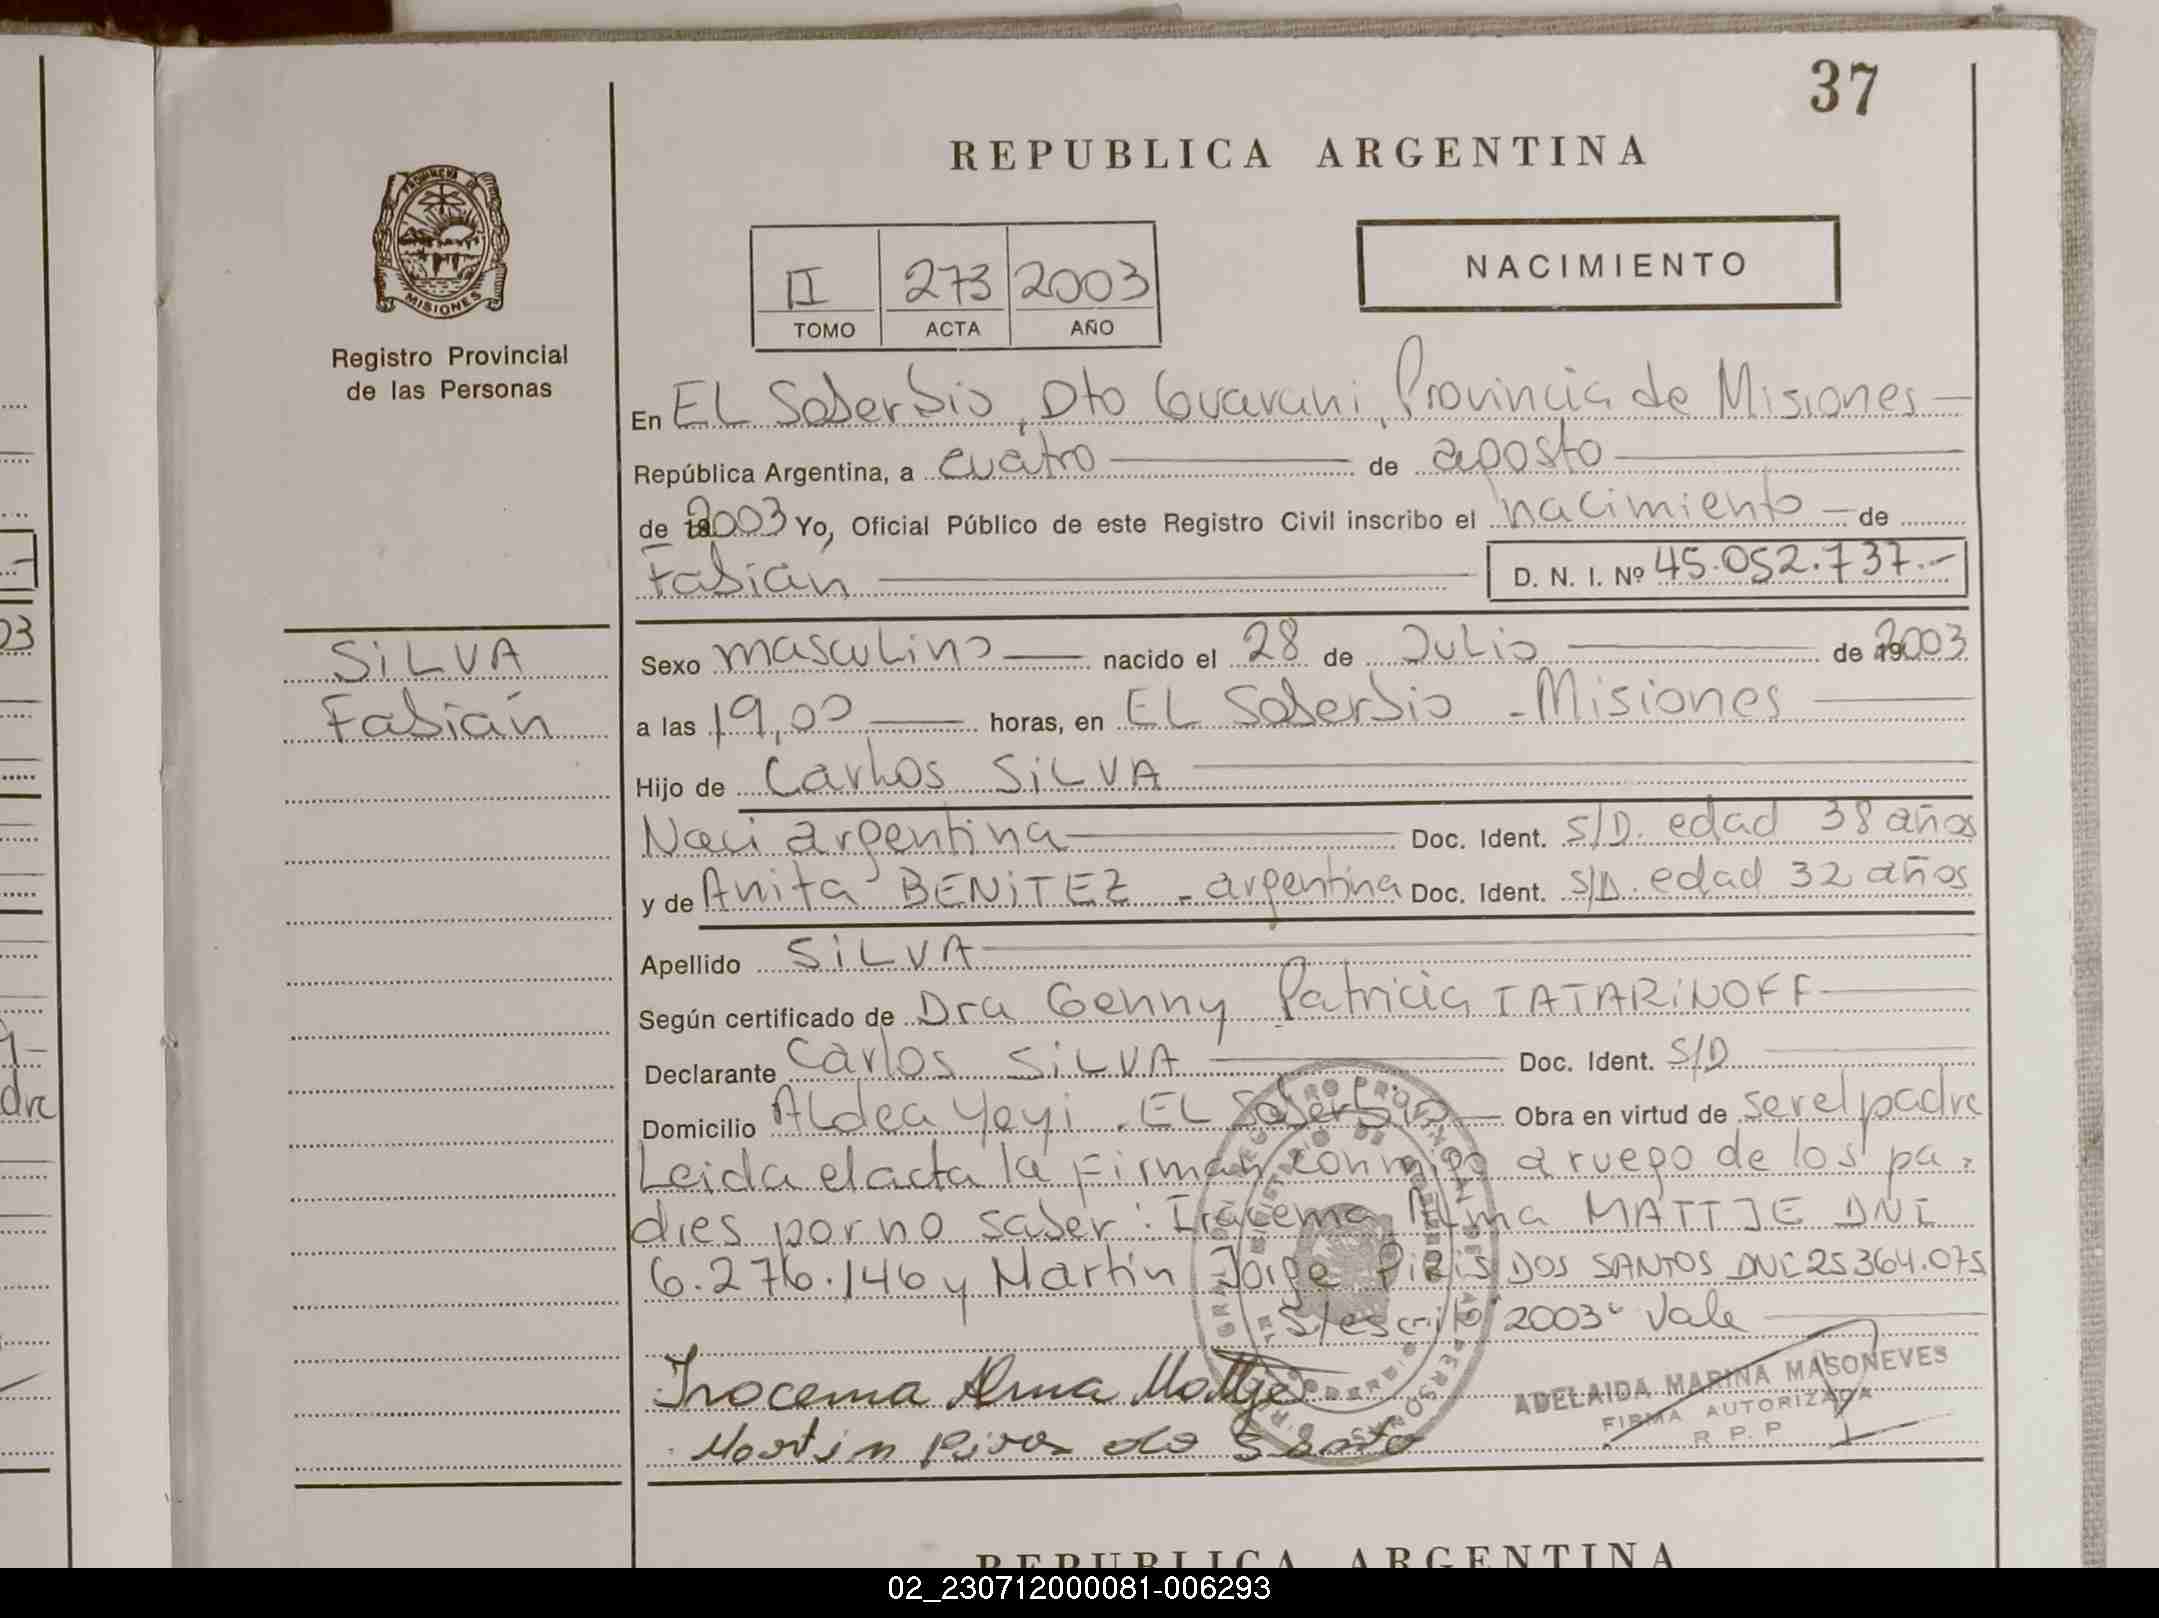 37
REPUBLICA ARGENTINA
PROVINCIA DE
MISIONES
Registro Provincial
de las Personas
II 273 2003
TOMO ACTA AÑO
NACIMIENTO
En EL Soberbio, Dto Guarani, Provincia de Misiones
República Argentina, a cuatro de agosto
de 2003 Yo, Oficial Público de este Registro Civil inscribo el nacimiento de
Fabián D. N. I. Nº 45.052.737.-
SiLVA
Fabián
Sexo masculino nacido el 28 de Julio de 2003
a las 19,00 horas, en EL Soberbio - Misiones
Hijo de Carlos SiLVA
Naci argentina Doc. Ident. S/D. edad 38 años
y de Anita BENiTEZ - argentina Doc. Ident. S/D. edad 32 años
Apellido SiLVA
Según certificado de Dra Genny Patricia TATARiNOFF
Declarante Carlos SiLVA Doc. Ident. S/D
Domicilio ALdea Yeyi. EL Soberbio Obra en virtud de ser el padre
Leida el acta la Firman conmigo a ruego de los pa-
dres por no saber: Iracema Alma MATTJE DNI
6.276.146 y Martin Jorge PIRIS DOS SANTOS DNI 25364.075
S/escrito "2003" Vale
Iracema Alma Mattje
Martin Piris do Santo
ADELAIDA MARINA MASONEVES
FIRMA AUTORIZADA
R. P. P
03
dre
REPUBLICA ARGENTINA
02_230712000081-006293